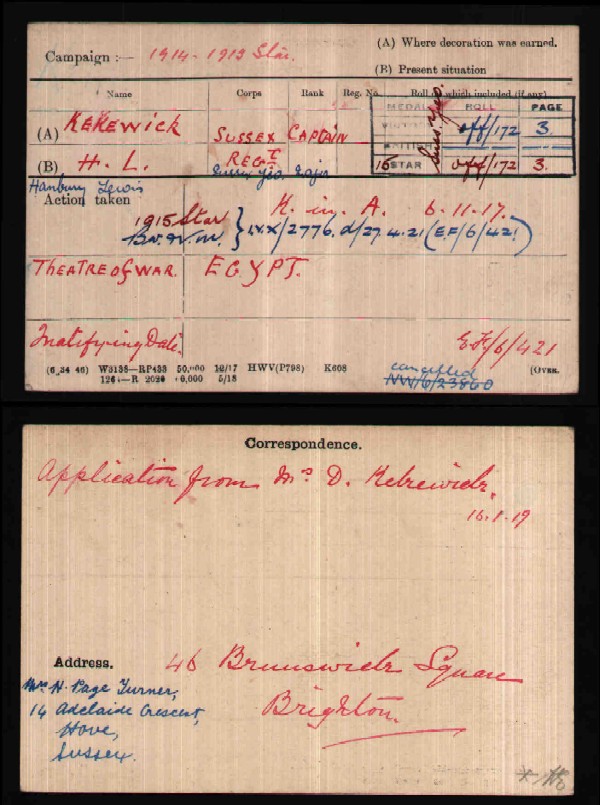 Campaign :— 1914-1915 Star.
(A) Where decoration was earned.
(B) Present situation
Name Corps Rank Reg. No. Roll on which included (if any)
MEDAL ROLL PAGE
(A) KEKEWICK SUSSEX CAPTAIN
VICTORY off/172 3.
BRITISH
(B) H. L. REGT
Suss. Yeo.
15 STAR off/172 3.
Hanbury Lewis Suss. Yeo. Major
Action taken K. in. A. 6.11.17.
1915 Star
B.W.V.M. } I.V.X/2776.d/27.4.21 (EF/6/421)
THEATRE OF WAR. EGYPT.
Qualifying Date. E.F/6/421
cancelled
NW/6/23860
(6 34 46) W3138—RP433 12/17 HWV(P798) K608 (OVER.
5/18
Correspondence.
Application from Mrs D. Kekewich.
16.1.19
Address. 46 Brunswick Square
Brighton.
Mrs H. Page Turner,
14 Adelaide Crescent,
Hove,
Sussex.